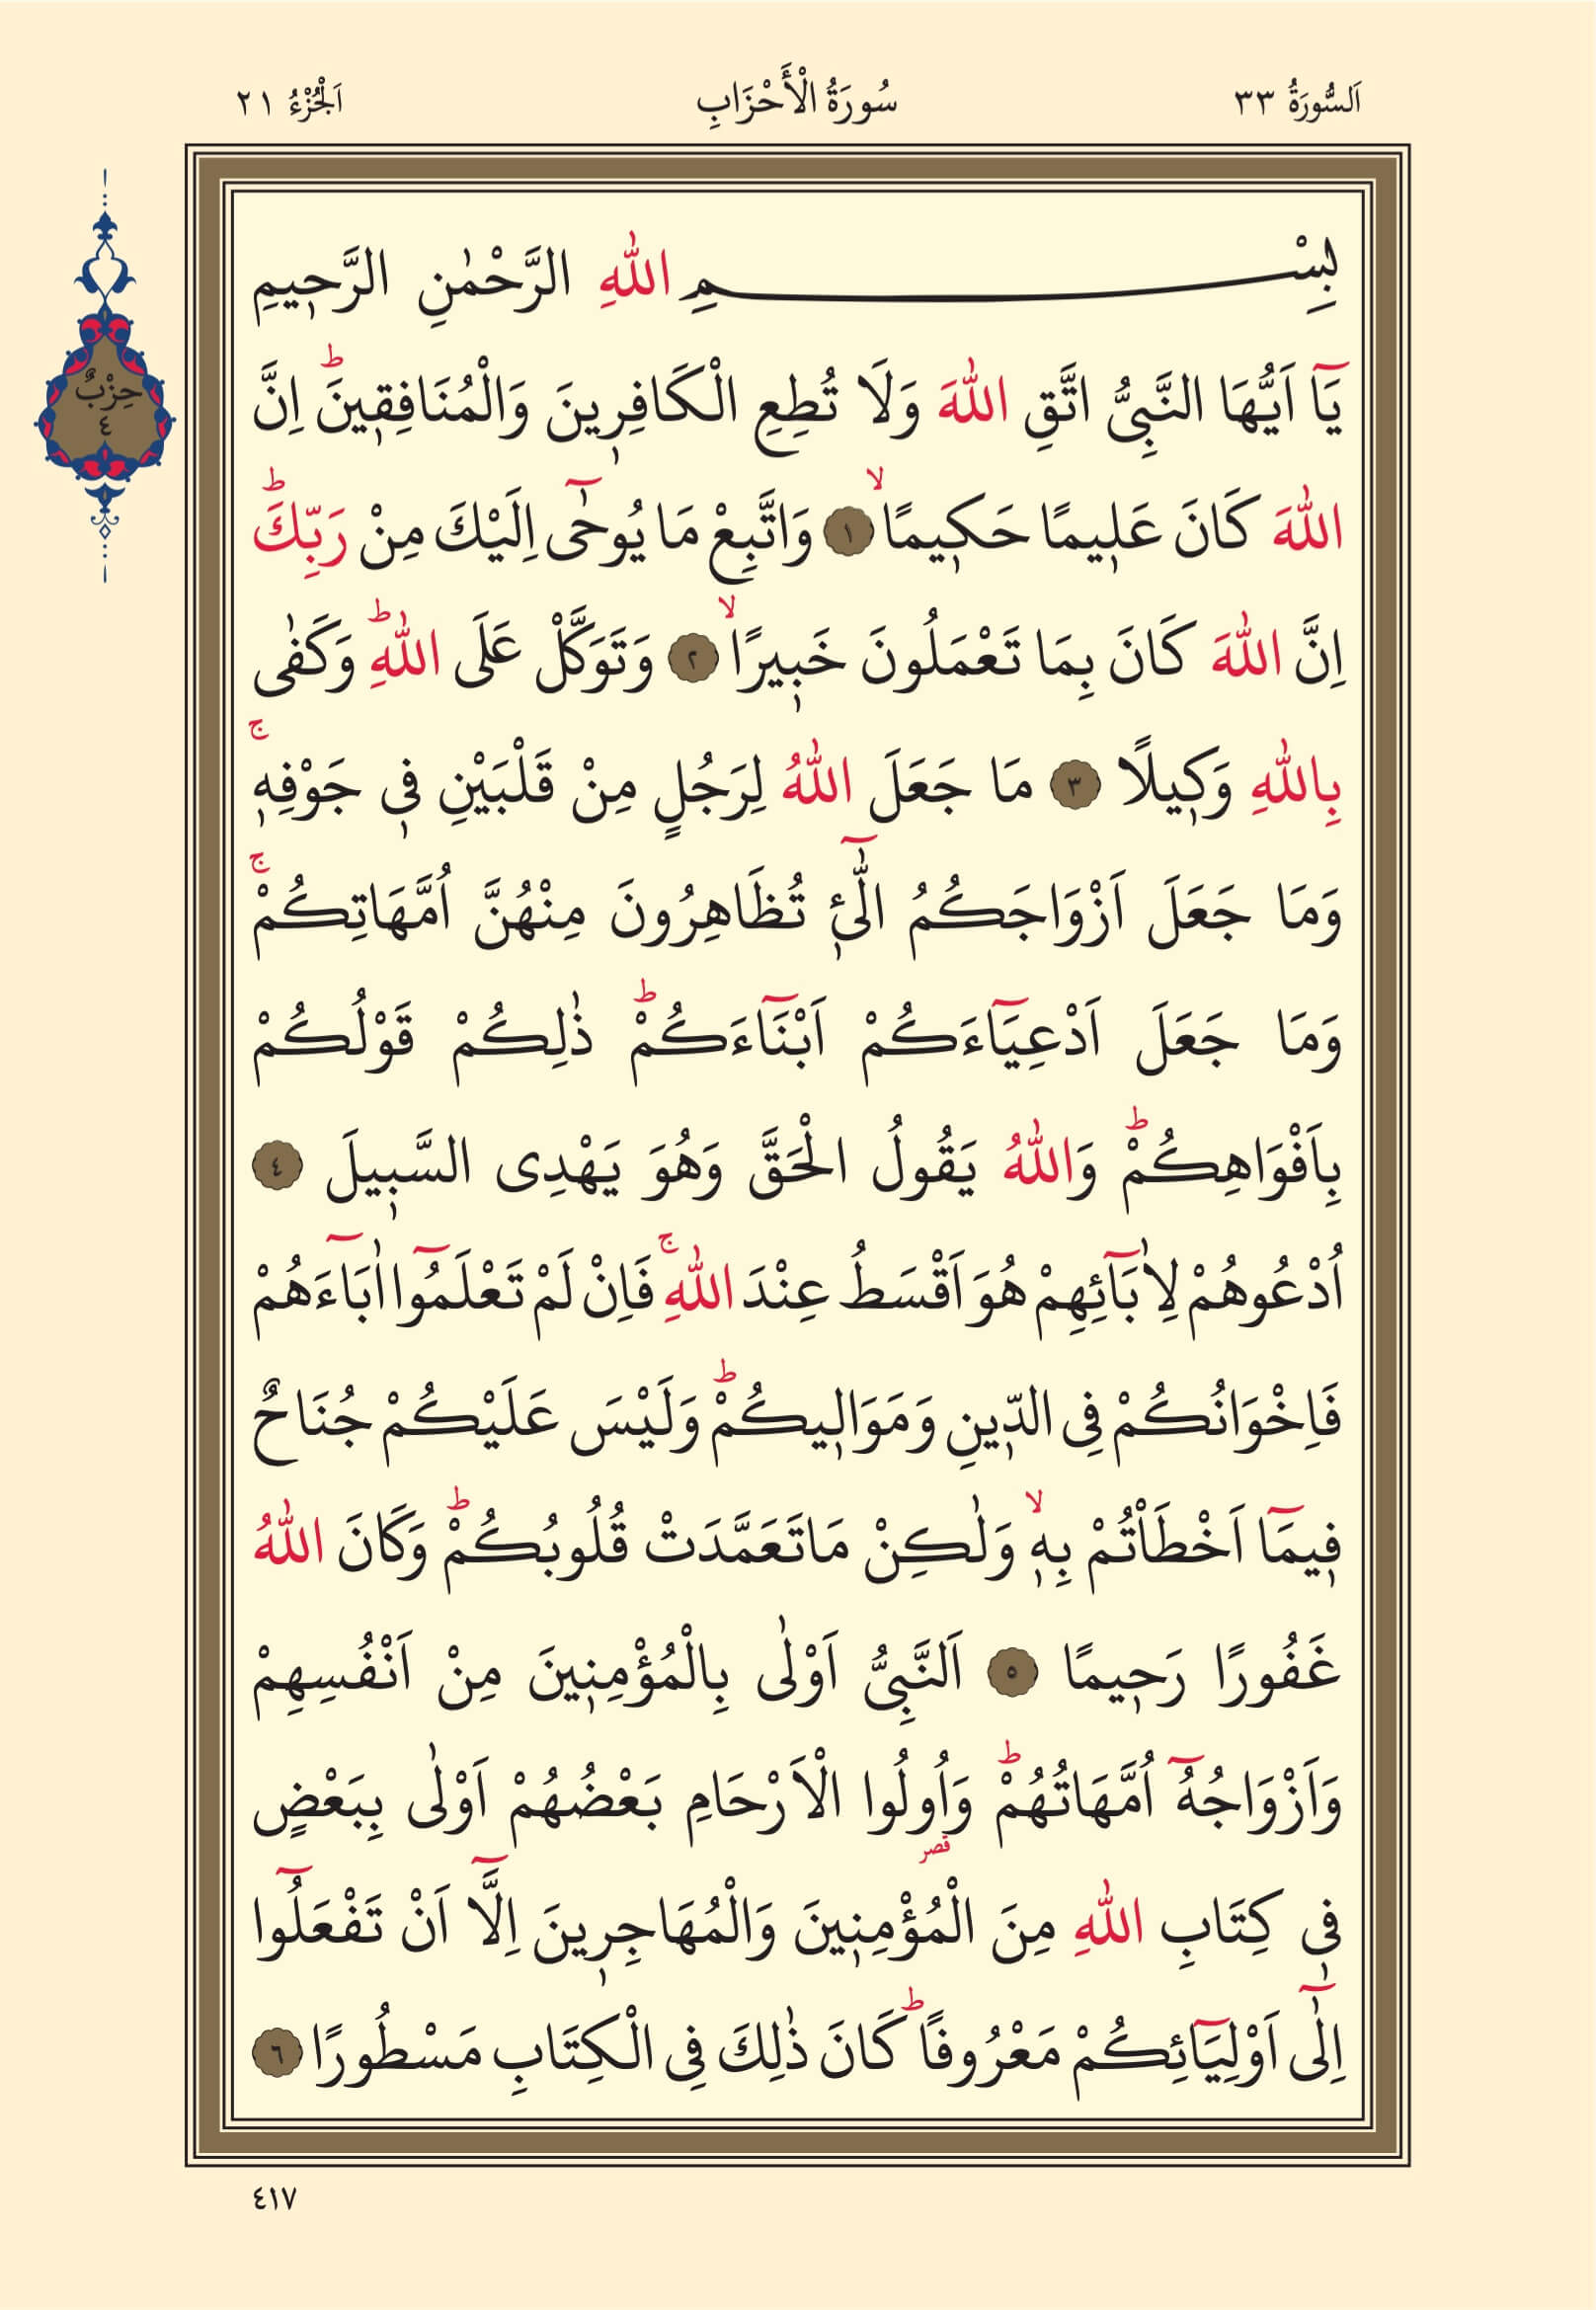 اَلسُّورَةُ ٣٣ سُورَةُ الْأَحْزَابِ اَلْجُزْءُ ٢١
حِزْبٌ
٤
بِسْمِ اللّٰهِ الرَّحْمٰنِ الرَّحٖيمِ
يَٓا اَيُّهَا النَّبِىُّ اتَّقِ اللّٰهَ وَلَا تُطِعِ الْكَافِرٖينَ وَالْمُنَافِقٖينَۜ اِنَّ
اللّٰهَ كَانَ عَلٖيمًا حَكٖيمًاۙ ١ وَاتَّبِعْ مَا يُوحٰٓى اِلَيْكَ مِنْ رَبِّكَۜ
اِنَّ اللّٰهَ كَانَ بِمَا تَعْمَلُونَ خَبٖيرًاۙ ٢ وَتَوَكَّلْ عَلَى اللّٰهِۜ وَكَفٰى
بِاللّٰهِ وَكٖيلًا ٣ مَا جَعَلَ اللّٰهُ لِرَجُلٍ مِنْ قَلْبَيْنِ فٖى جَوْفِهٖۚ
وَمَا جَعَلَ اَزْوَاجَكُمُ الّٰٓئٖ تُظَاهِرُونَ مِنْهُنَّ اُمَّهَاتِكُمْۚ
وَمَا جَعَلَ اَدْعِيَٓاءَكُمْ اَبْنَٓاءَكُمْۜ ذٰلِكُمْ قَوْلُكُمْ
بِاَفْوَاهِكُمْۜ وَاللّٰهُ يَقُولُ الْحَقَّ وَهُوَ يَهْدِى السَّبٖيلَ ٤
اُدْعُوهُمْ لِاٰبَٓائِهِمْ هُوَ اَقْسَطُ عِنْدَ اللّٰهِۚ فَاِنْ لَمْ تَعْلَمُٓوا اٰبَٓاءَهُمْ
فَاِخْوَانُكُمْ فِى الدّٖينِ وَمَوَالٖيكُمْۜ وَلَيْسَ عَلَيْكُمْ جُنَاحٌ
فٖيمَٓا اَخْطَاْتُمْ بِهٖۙ وَلٰكِنْ مَا تَعَمَّدَتْ قُلُوبُكُمْۜ وَكَانَ اللّٰهُ
غَفُورًا رَحٖيمًا ٥ اَلنَّبِىُّ اَوْلٰى بِالْمُؤْمِنٖينَ مِنْ اَنْفُسِهِمْ
وَاَزْوَاجُهُٓ اُمَّهَاتُهُمْۜ وَاُولُوا الْاَرْحَامِ بَعْضُهُمْ اَوْلٰى بِبَعْضٍ
قصر
فٖى كِتَابِ اللّٰهِ مِنَ الْمُؤْمِنٖينَ وَالْمُهَاجِرٖينَ اِلَّٓا اَنْ تَفْعَلُٓوا
اِلٰٓى اَوْلِيَٓائِكُمْ مَعْرُوفًاۜ كَانَ ذٰلِكَ فِى الْكِتَابِ مَسْطُورًا ٦
٤١٧